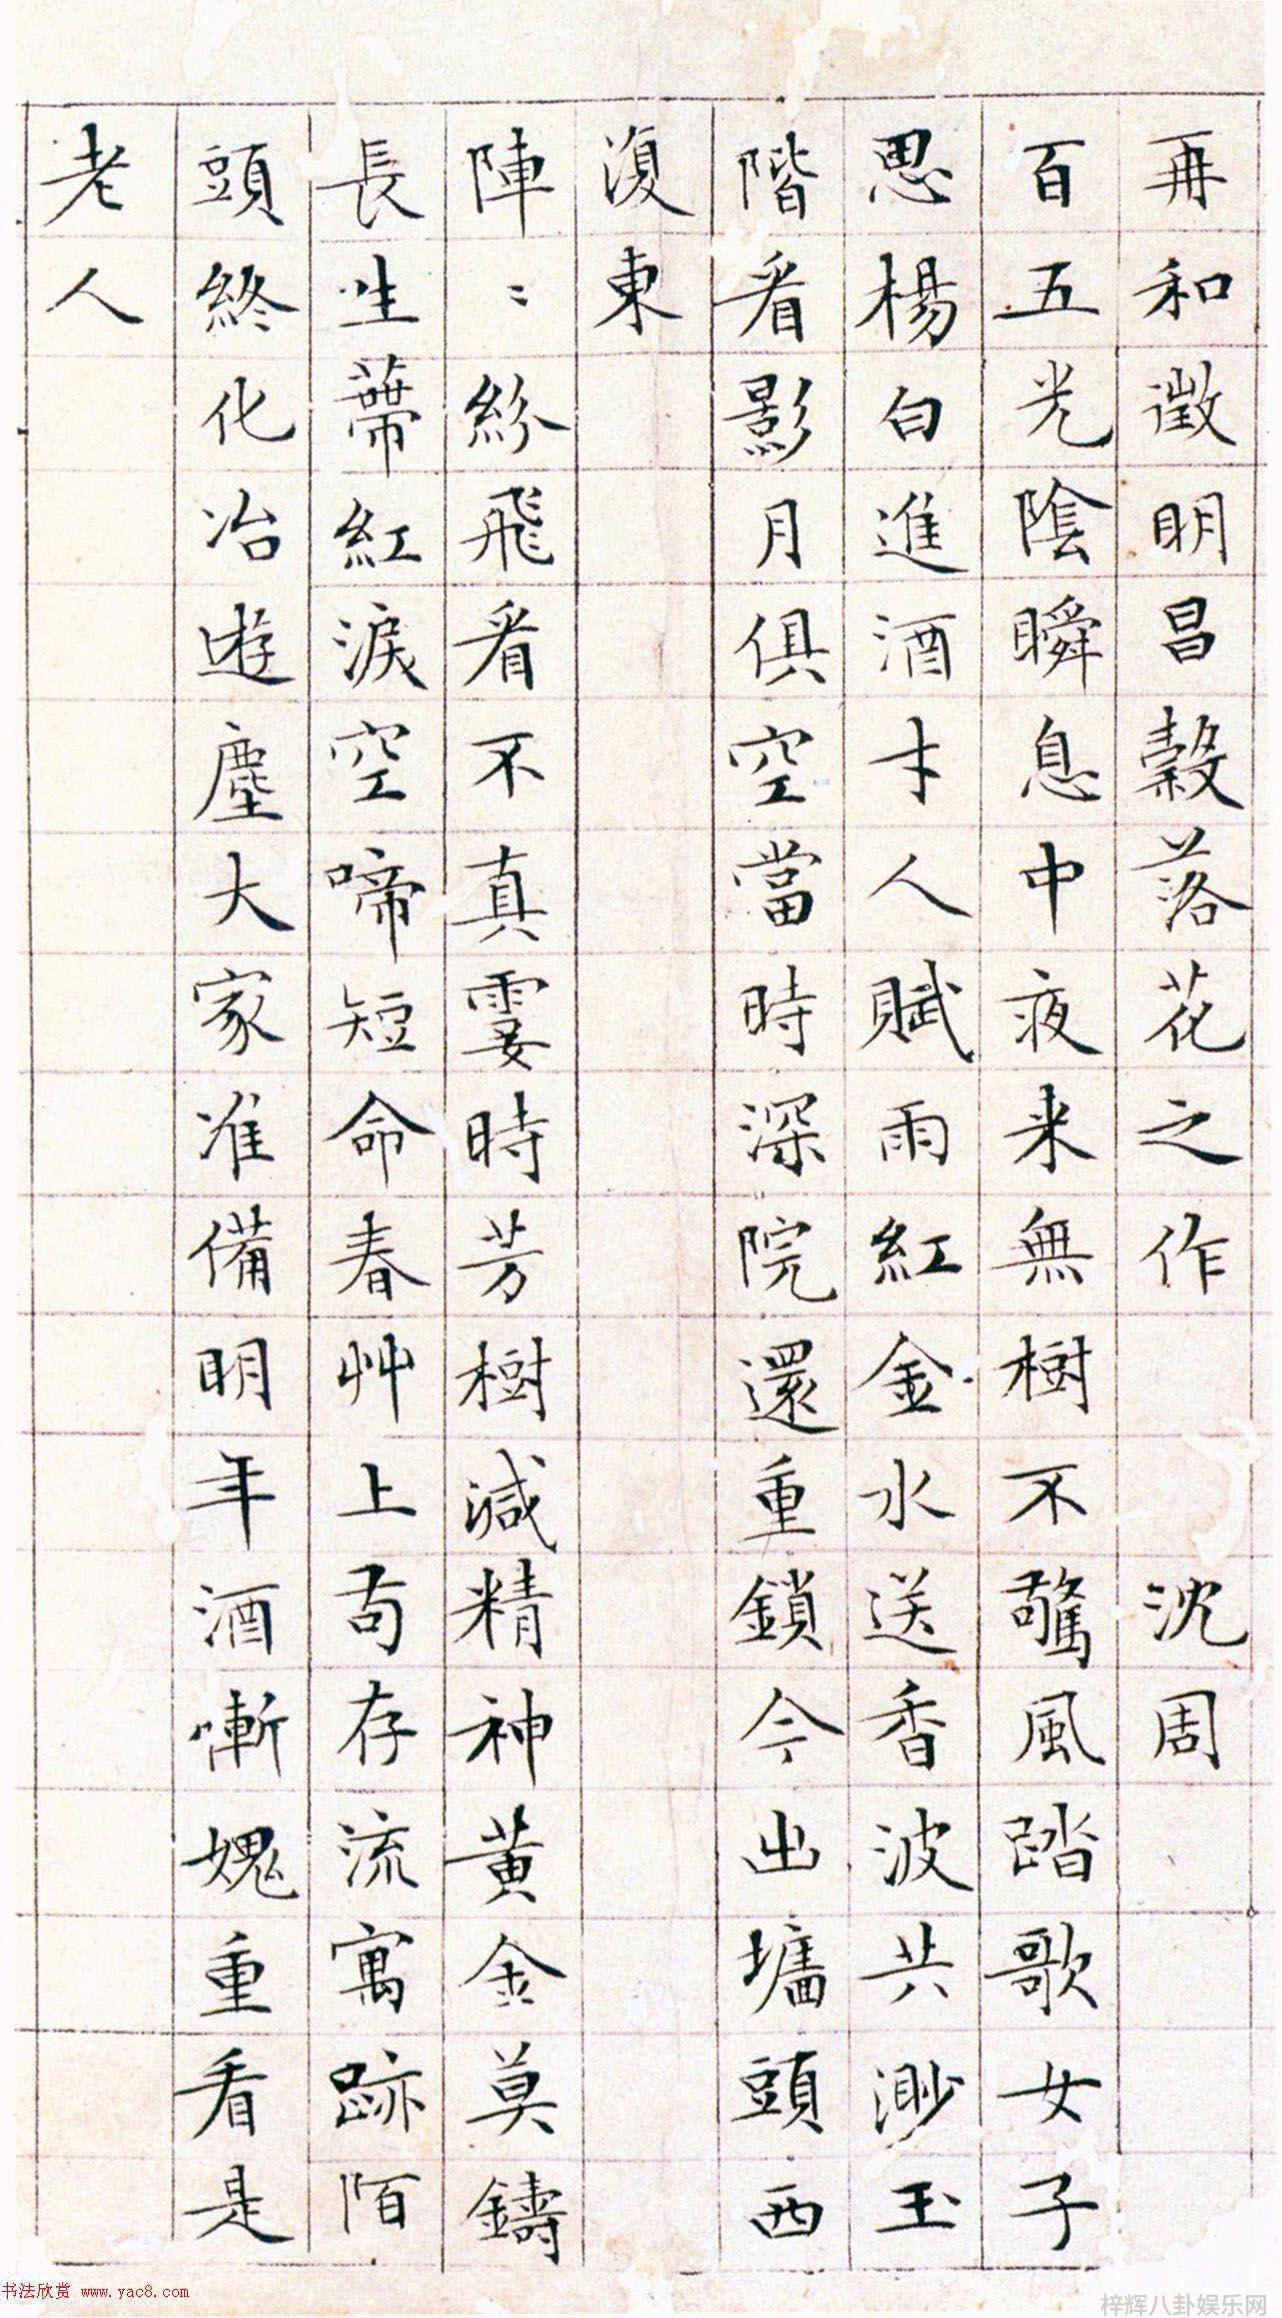 再和徵明昌穀落花之作 沈周
百五光陰瞬息中夜来無樹不驚風踏歌女子
思楊白進酒才人賦雨紅金水送香波共渺玉
階看影月俱空當時深院還重鎖今出墻頭西
復東
陣〻紛飛看不真霎時芳樹減精神黄金莫鑄
長生蔕紅淚空啼短命春艸上苟存流寓跡陌
頭終化冶遊塵大家准備明年酒慚愧重看是
老人
书法欣赏 www.yac8.com
梓辉八卦娱乐网